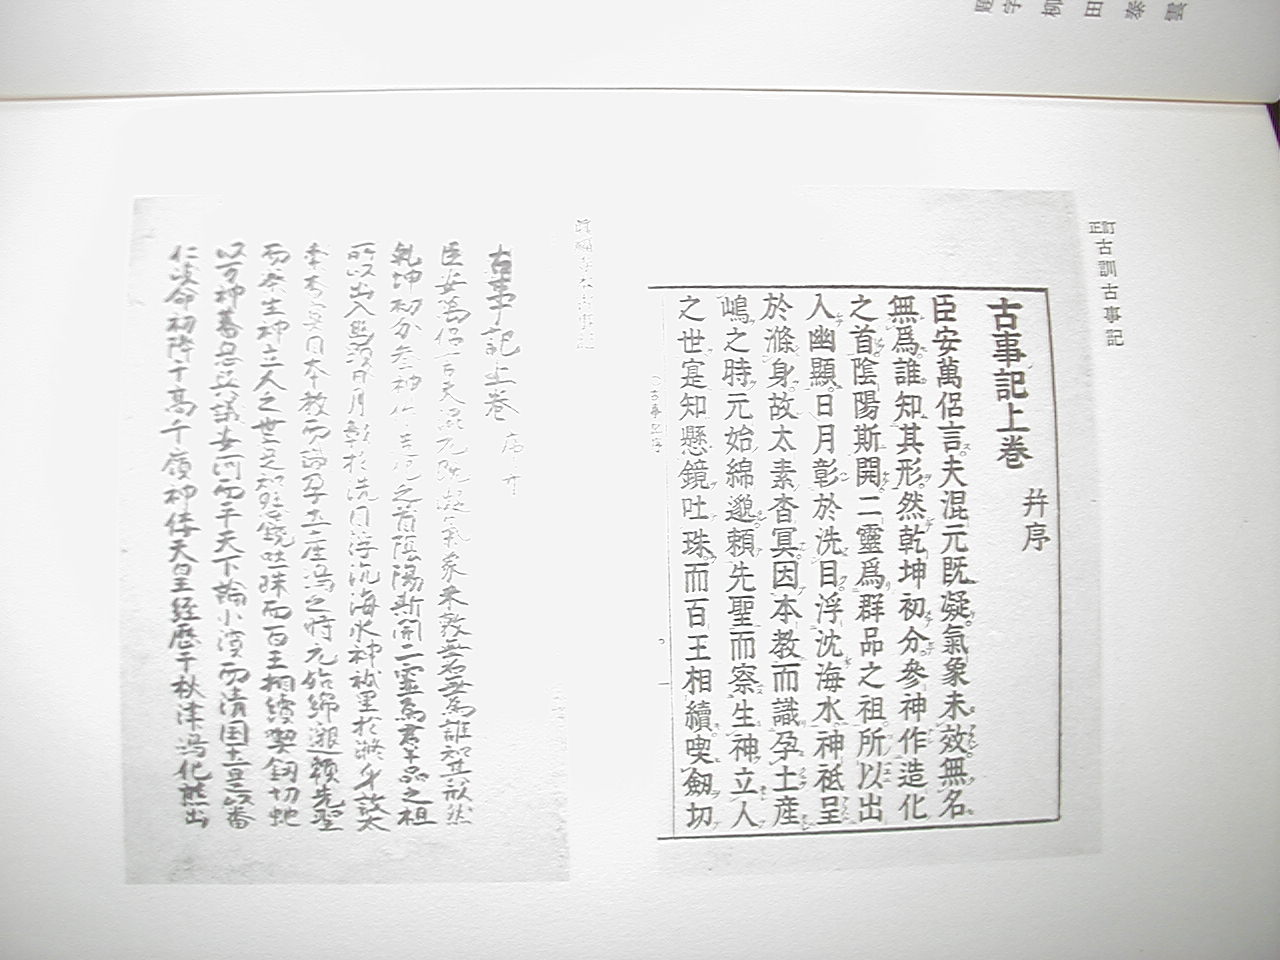 題字 柳田泰雲
訂正 古訓古事記
古事記上卷 幷序
臣安萬侶言夫混元既凝氣象未效無名
無爲誰知其形然乾坤初分參神作造化
之首陰陽斯開二靈爲群品之祖所以出
入幽顯日月彰於洗目浮沈海水神祇呈
於滌身故太素杳冥因本教而識孕土産
嶋之時元始綿邈頼先聖而察生神立人
之世寔知懸鏡吐珠而百王相續喫劔切
古事記上卷 序并
臣安萬侶言夫混元既凝氣象未敦無名無爲誰知其形然
乾坤初分參神作造化之首陰陽斯開二靈爲群品之祖
所以出入幽顯日月彰於洗目浮沉海水神祇呈於滌身故太
素杳冥因本教而識孕土産嶋之時元始綿邈頼先聖
而察生神立人之世寔知懸鏡吐珠而百王相續喫釼切虵
以万神蕃息与議安河而平天下論小濱而清国土是以番
仁岐命初降于高千嶺神倭天皇経歴于秋津嶋化熊出